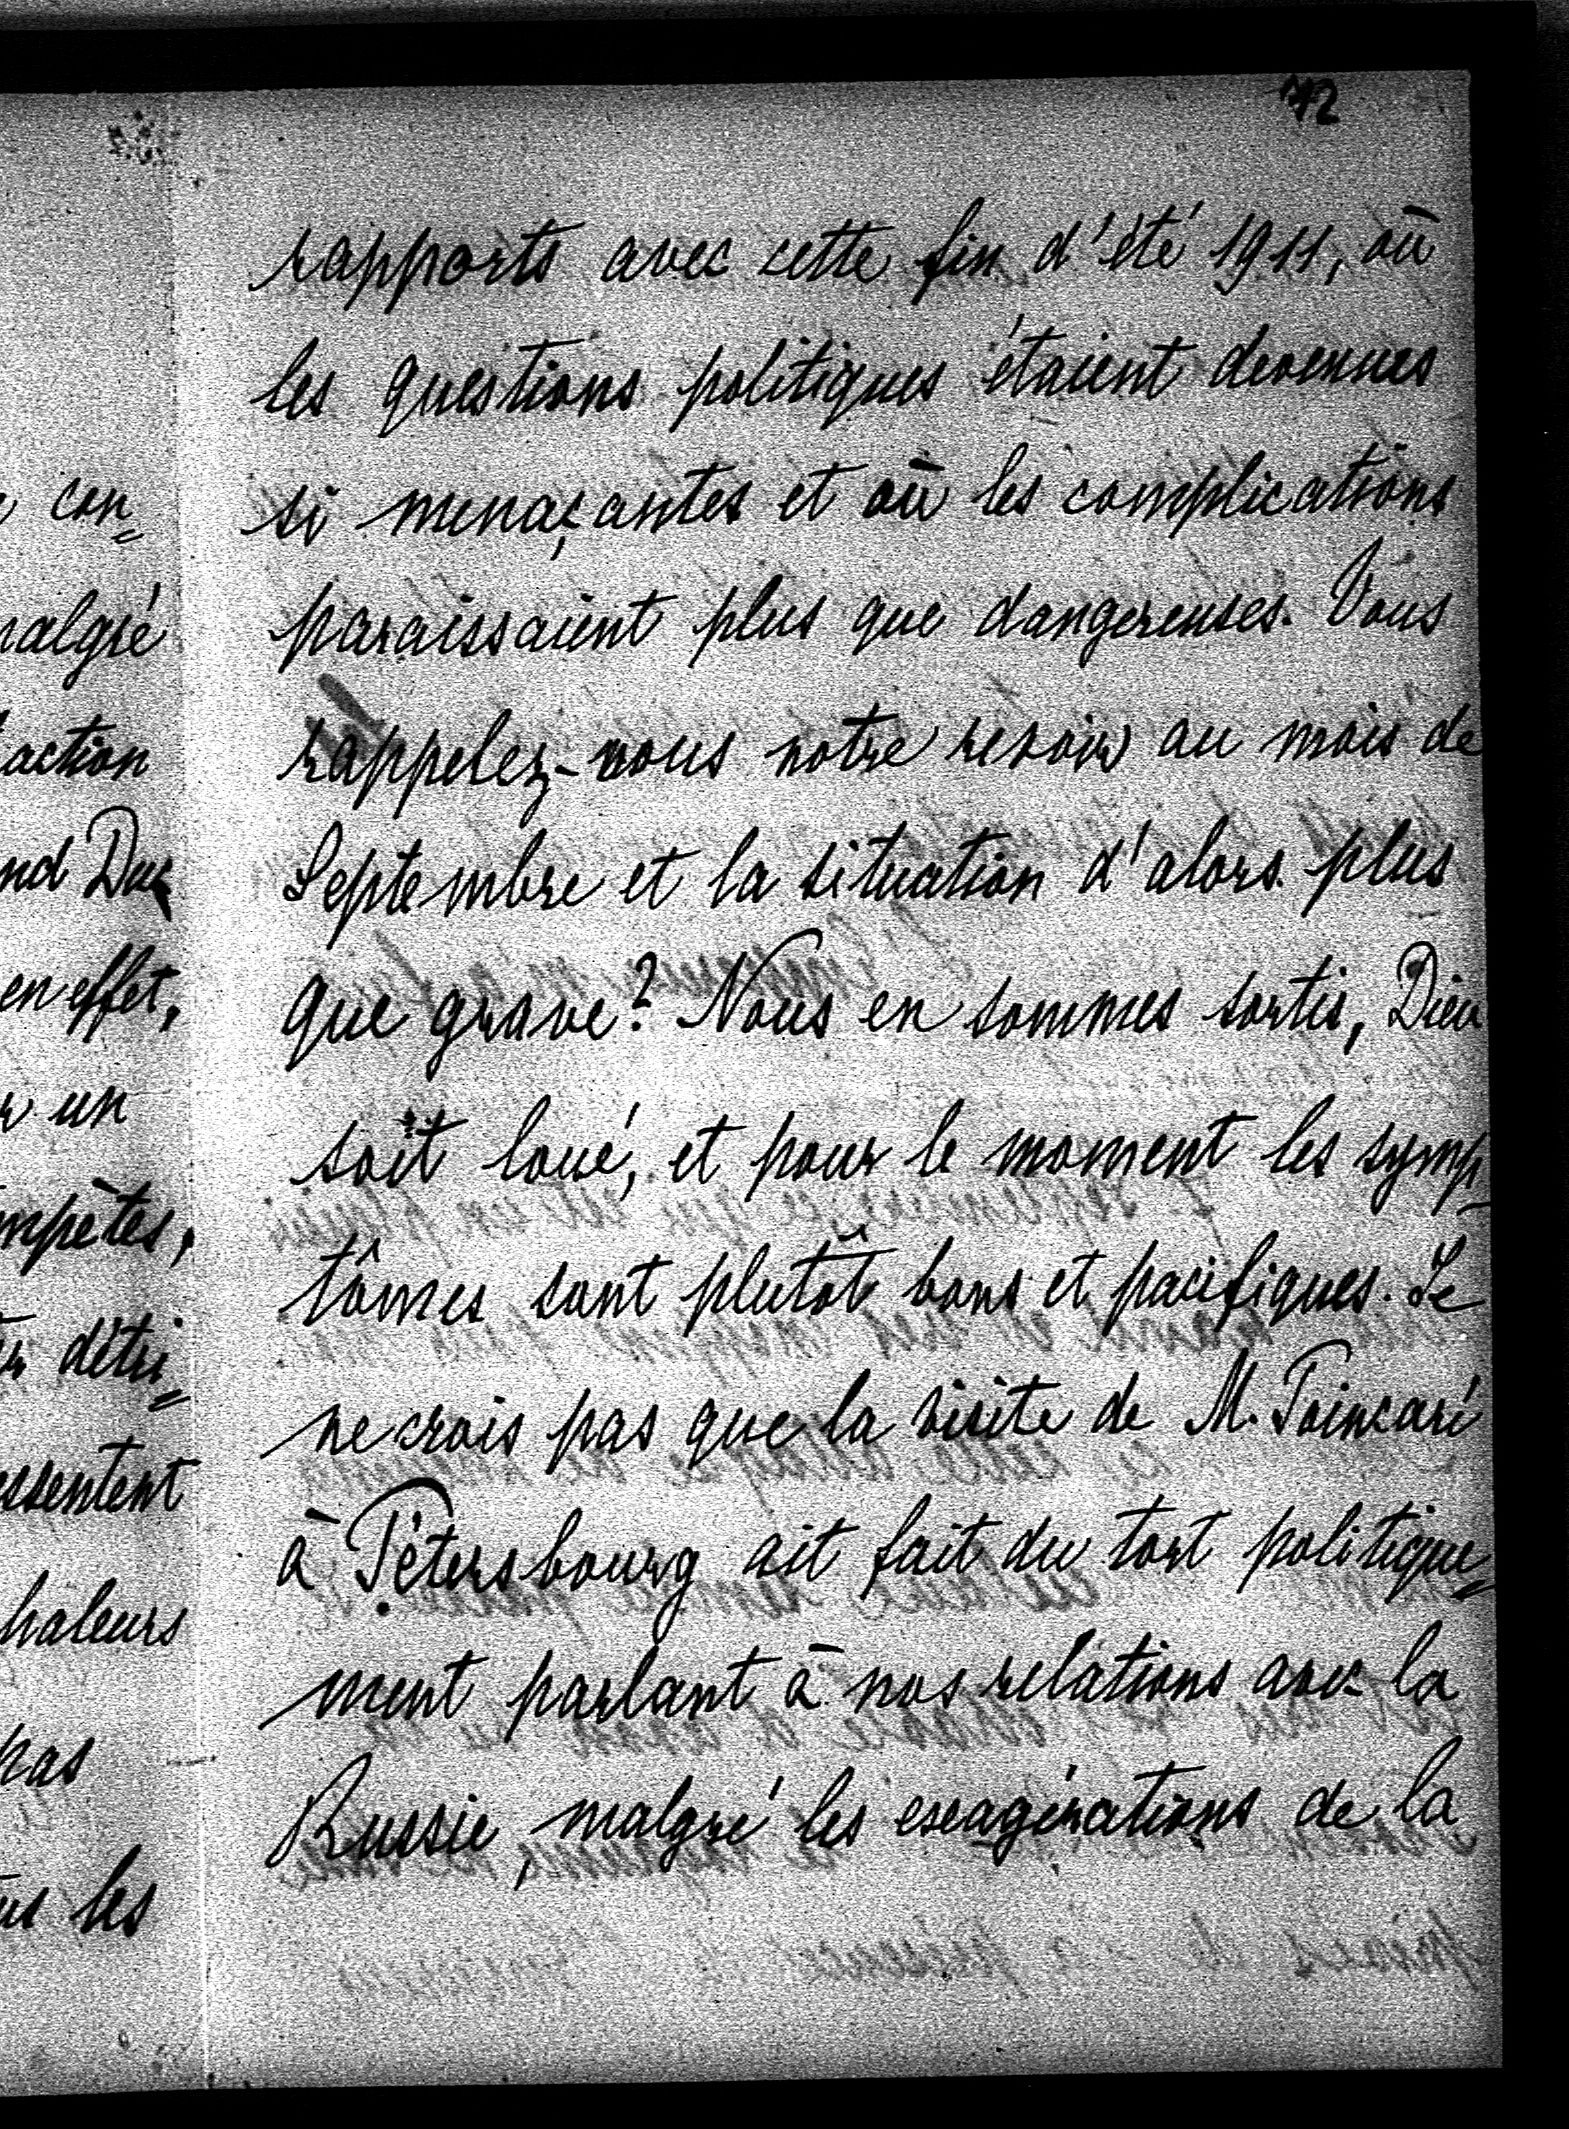 72
rapports avec cette fin d'été 1911, où
les questions politiques étaient devenues
si menaçantes et où les complications
paraissaient plus que dangereuses. Vous
rappelez-vous notre revoir au mois de
Septembre et la situation d'alors plus
que grave? Nous en sommes sortis, Dieu
soit loué, et pour le moment les symp-
tômes sont plutôt bons et pacifiques. Je
ne crois pas que la visite de M. Poincaré
à Pétersbourg ait fait du tort politique=
ment parlant à nos relations avec la
Russie, malgré les exagérations de la
con=
malgré
action
Duc
en effet,
un
détri=
chaleurs
pas
les